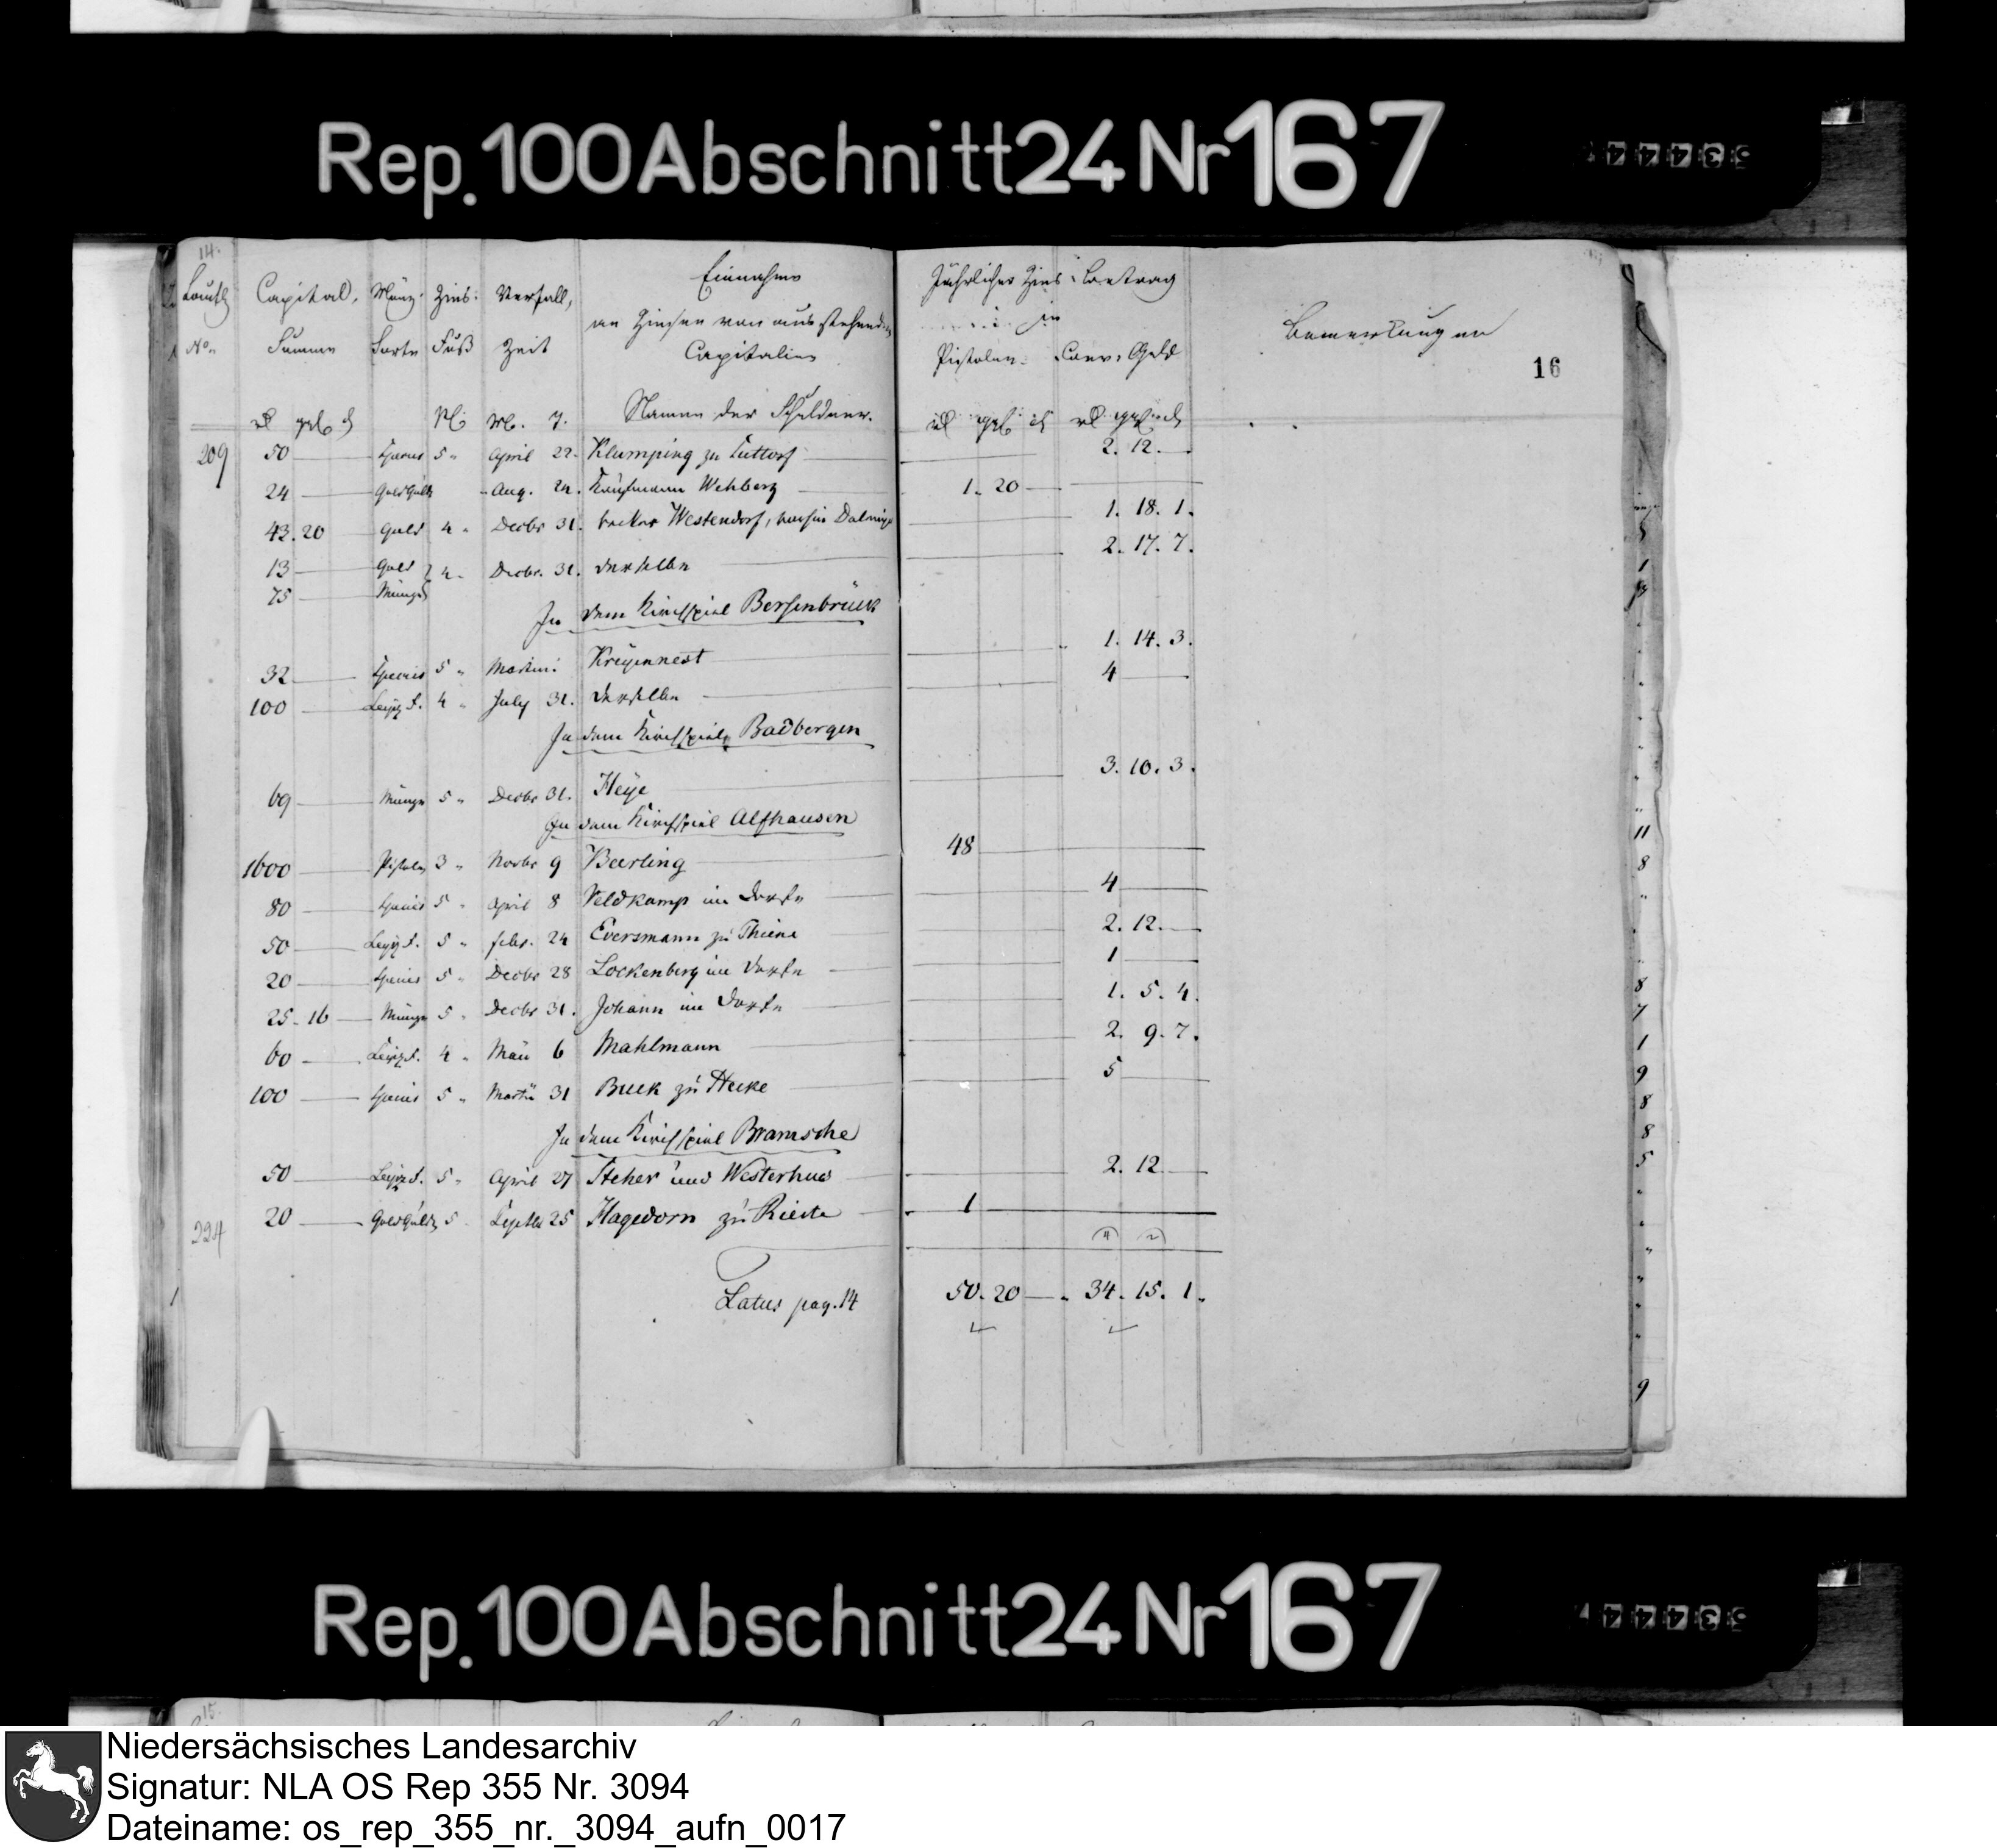 Rep. 100 Abschnitt 24 Nr 167
14.
Laufde Capital, Münz- Zins- Verfall, Einnahme Jährlicher Zins-Betrag
an Zinsen von ausstehenden in Bemerkungen
No. Summe Sorte Fuß Zeit Capitalien Pistolen Conv. Geld
16
Namen der Schuldner.
209 50 — 5 „ April 22. Klumping zu Luttorf 2. 12. —
24 — Goldgulden Aug. 24. Kaufmann Wehberg 1. 20 —
43. 20 Gold 4 „ Decbr 31. Westendorf, 1. 18. 1.
13 — Gold } 4 „ Decbr. 31. derselbe 2. 17. 7.
75 — Münze
In dem Kirchspiel Bersenbrück
32 — 5 „ Martini Kreyennest 1. 14. 3.
100 — 4 „ July 31. derselbe 4 —
In dem Kirchspiele Badbergen
69 — Münze 5 „ Decbr 31. Heye 3. 10. 3.
In dem Kirchspiel Alfhausen
1600 — Pistolen 3 „ Novbr 9 Beerling 48 —
80 — 5 „ April 8 Veldkamp im Dorfe 4 —
50 — 5 „ Febr. 24 Eversmann zu Thiene 2. 12. —
20 — 5 „ Decbr 28 Lockenberg im Dorfe 1 —
25. 16 — Münze 5 „ Decbr 31. Johann im Dorfe 1. 5. 4.
60 — 4 „ 6 Mahlmann 2. 9. 7.
100 — 5 „ 31 Buck zu Hecke 5 —
In dem Kirchspiel Bramsche
50 — 5 „ April 27 Steher und Westerhus 2. 12 —
224 20 — Goldgulden 5 Septbr 25 Hagedorn zu Rieste 1 —
4 2
Latus pag. 14 50. 20 — 34. 15. 1.
Rep. 100 Abschnitt 24 Nr 167
15.
Niedersächsisches Landesarchiv
Signatur: NLA OS Rep 355 Nr. 3094
Dateiname: os_rep_355_nr._3094_aufn_0017